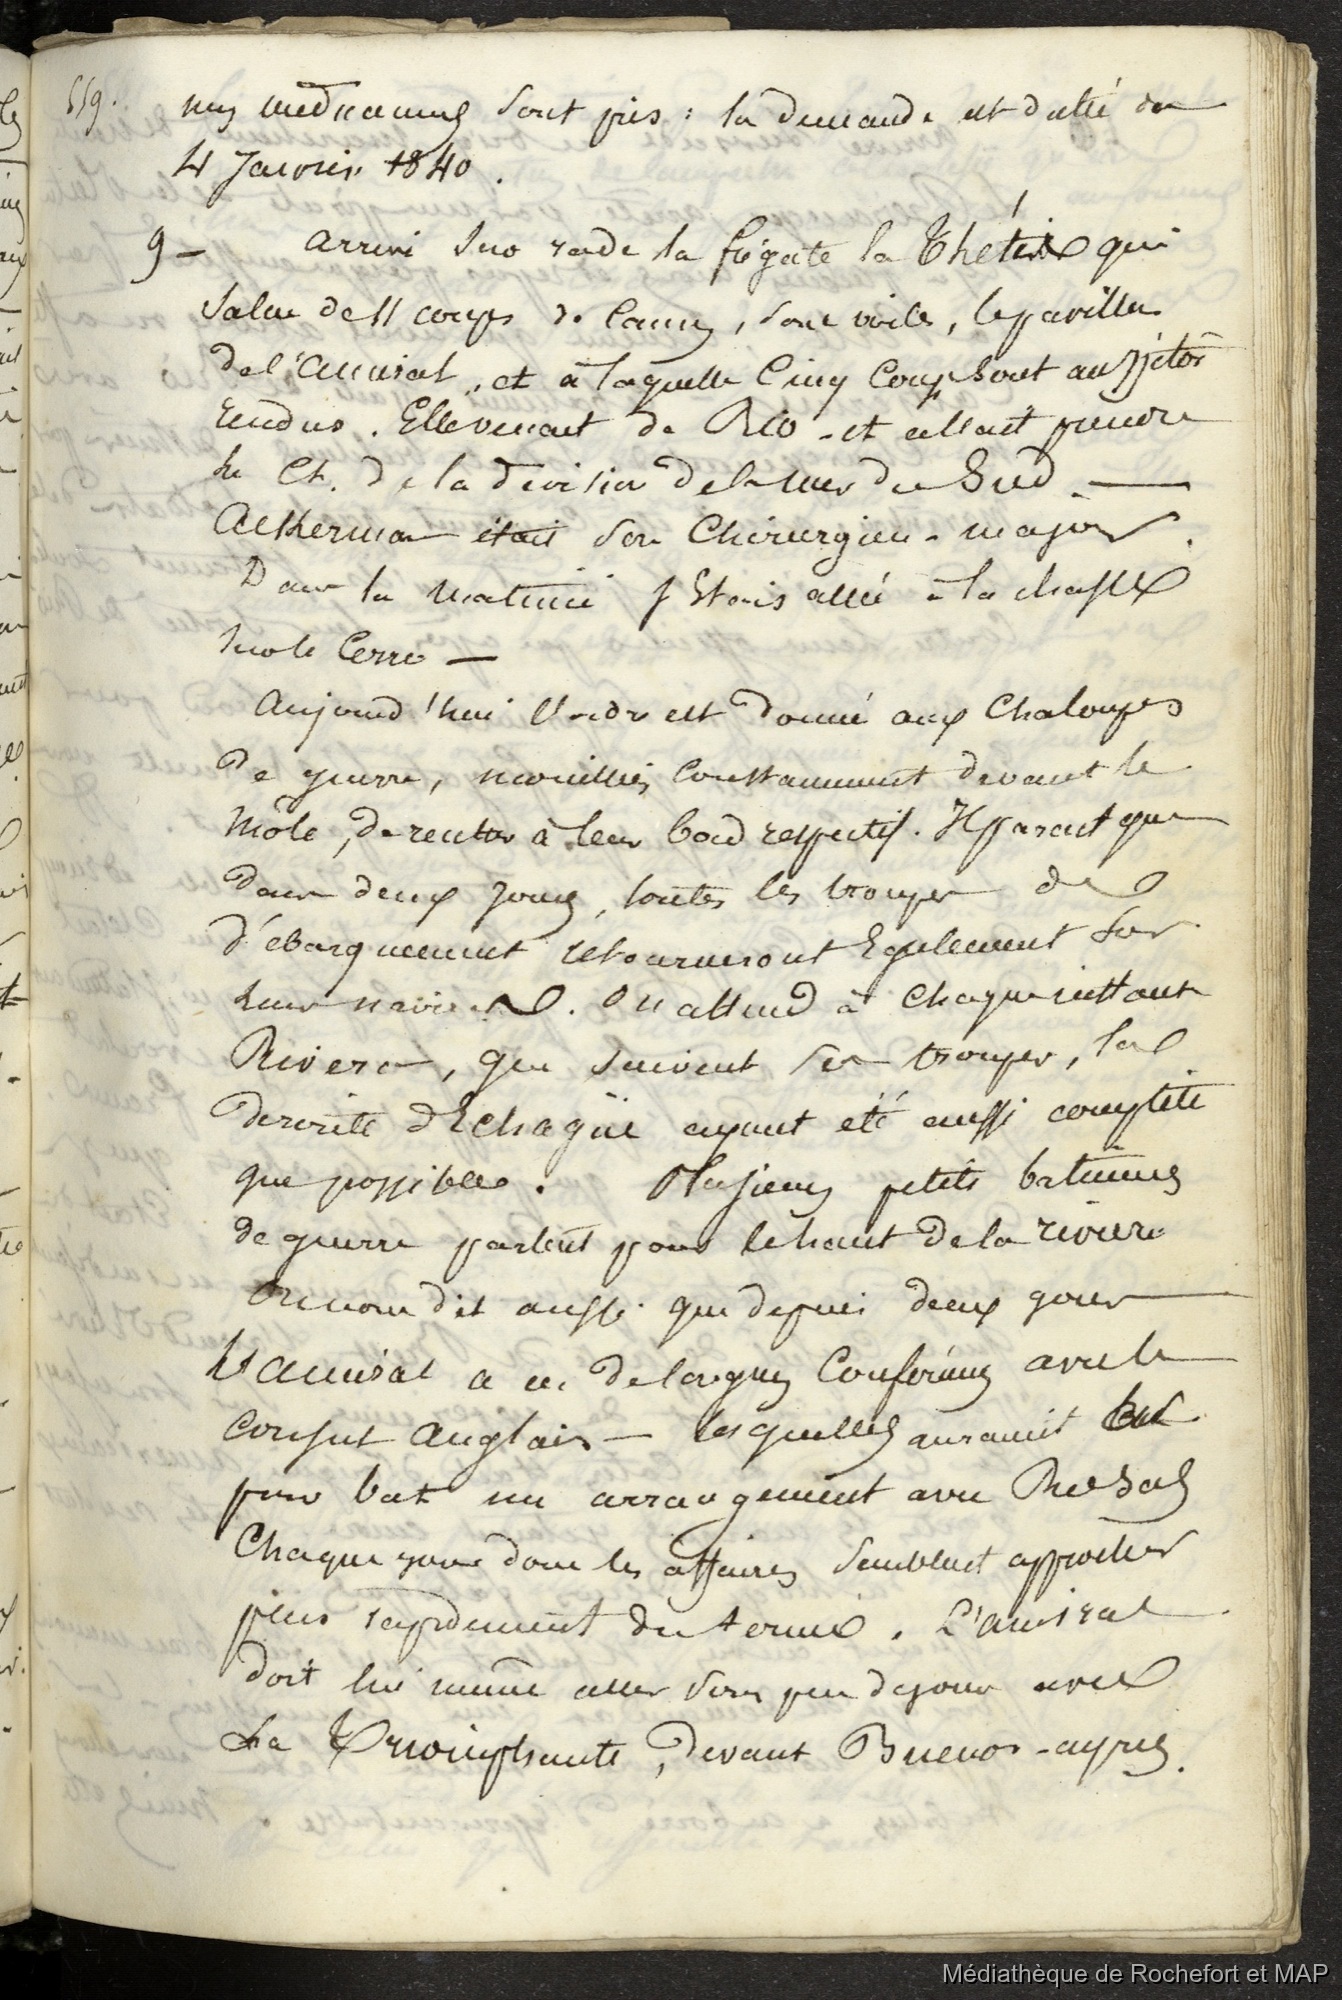 559.
mes médicamens sont pris : la demande est datée du
4 Janvier 1840.
9 – Arrivé sur rade la frégate la Thétis qui
salue de 11 coups de Canon, sous voiles, le pavillon
de l'Amiral, et à laquelle Cinq Coups sont aussitôt
rendus. Elle venait de Rio - et allait prendre
le Ct. de la division de la mer du Sud —
Ackerman était son Chirurgien-major.
Dans la matinée j'étais allé à la chasse
sur le Cerro —
Aujourd'hui l'ordre est donné aux Chaloupes
De guerre, mouillées constamment devant le
Môle, de rentrer à leur bord respectif. Il paraît que
dans deux jours, toutes les troupes de
débarquement retourneront également sur
leurs navires. On attend à chaque instant
Rivera, que suivent ses troupes, la
déroute d'Echagüe ayant été aussi complète
que possible. Plusieurs petits bâtimens
de guerre partent pour le haut de la rivière
On nous dit aussi que depuis deux jours
l'Amiral a eu de longues Conférences avec le
Consul Anglais — lesquelles auraient
pour but un arrangement avec Rosas
Chaque jour donc les affaires semblent approcher
plus rapidement du terme. L'amiral
doit lui même aller sous peu de jours avec
La Triomphante, devant Buenos-ayres.
Médiathèque de Rochefort et MAP